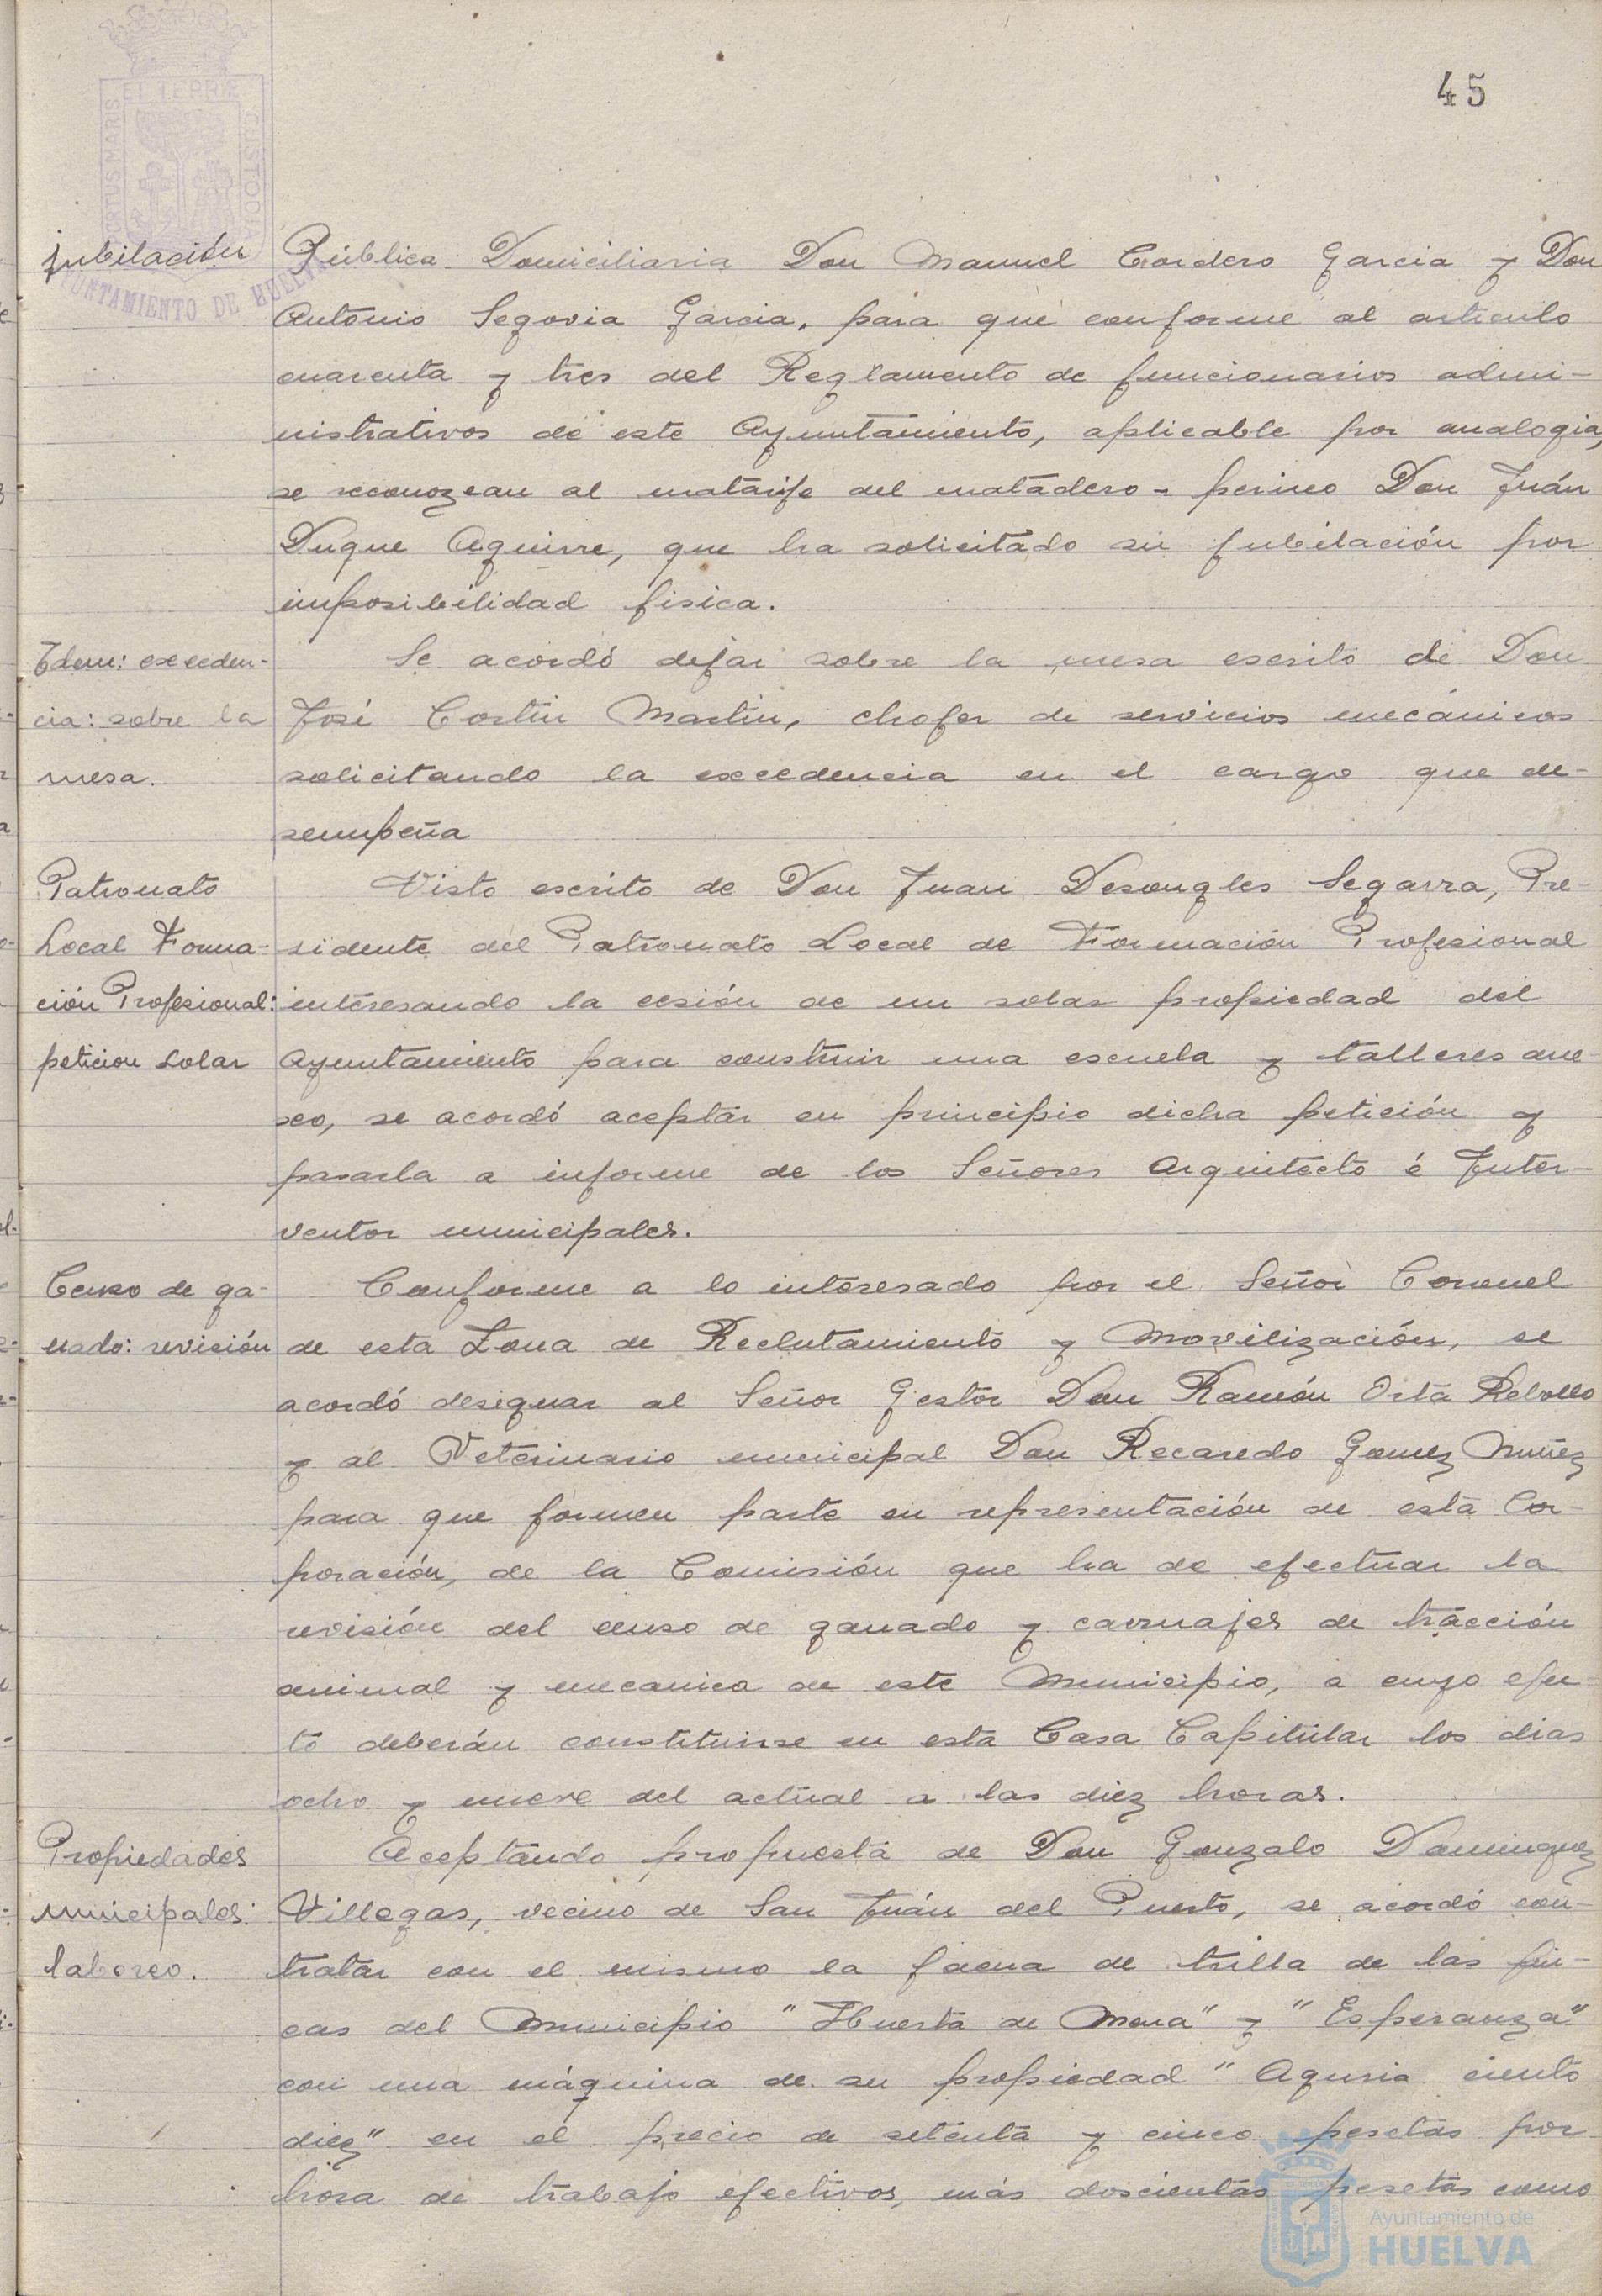 45
jubilación
Pública Domiciliaria Don Manuel Cordero Garcia y Don
Antonio Segovia Garcia, para que conforme al articulo
cuarenta y tres del Reglamento de funcionarios admi-
nistrativos de este Ayuntamiento, aplicable por analogia,
se reconozcan al matarife del matadero-perineo Don Juán
Duque Aguirre, que ha solicitado su jubilación por
imposibilidad fisica.
Idem: exceden-
cia: sobre la
mesa.
Se acordó dejar sobre la mesa escrito de Don
José Cortin Martin, chofer de servicios mecánicos
solicitando la excedencia en el cargo que de-
sempeña
Patronato
Local Forma-
ción Profesional:
peticion solar
Visto escrito de Don Juan Desongles Segarra, Pre-
sidente del Patronato Local de Formación Profesional
interesando la cesión de un solar propiedad del
Ayuntamiento para construir una escuela y talleres ane-
xo, se acordó aceptar en principio dicha petición y
pasarla a informe de los Señores Arquitecto é Inter-
ventor municipales.
Censo de ga-
nado: revisión
Conforme a lo interesado por el Señor Coronel
de esta Zona de Reclutamiento y Movilización, se
acordó designar al Señor Gestor Don Ramón Orta Rebollo
y al Veterinario municipal Don Recaredo Gomez Nuñez
para que formen parte en representación de esta Cor-
poración, de la Comisión que ha de efectuar la
revisión del censo de ganado y carruajes de tracción
animal y mecanica de este Municipio, a cuyo efec-
to deberán constituirse en esta Casa Capitular los dias
ocho y nueve del actual a las diez horas.
Propiedades
municipales:
laboreo.
Aceptando propuesta de Don Gonzalo Dominguez
Villegas, vecino de San Juán del Puerto, se acordó con-
tratar con el mismo la faena de trilla de las fin-
cas del Municipio "Huerta de Mena" y "Esperanza"
con una máquina de su propiedad "Aguria ciento
diez" en el precio de setenta y cinco pesetas por
hora de trabajo efectivos, más doscientas pesetas como
Ayuntamiento de
HUELVA